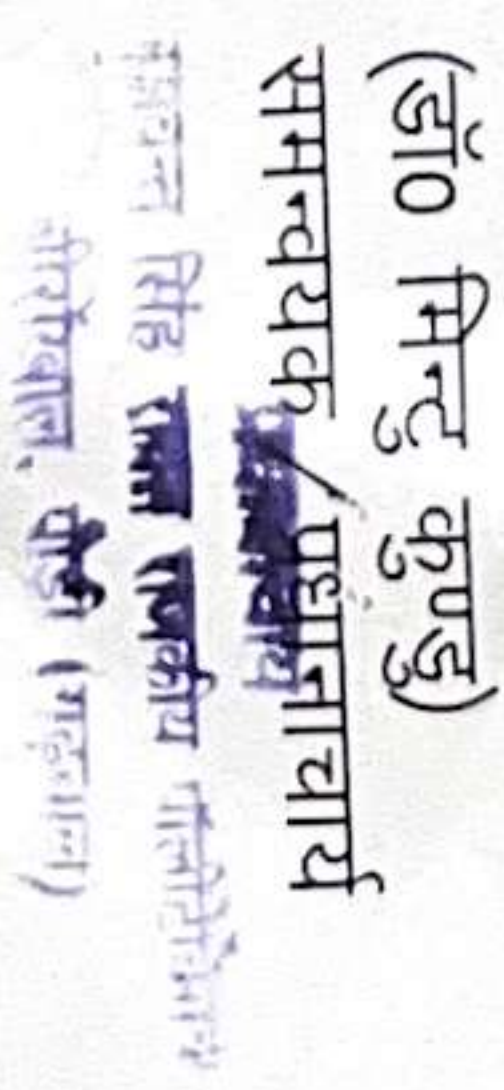 (डॉ० मिन्टु कुण्डु)
समन्वयक / प्रधानाचार्य
सिंह राजकीय पॉलीटेक्निक
पौड़ी (गढ़वाल)